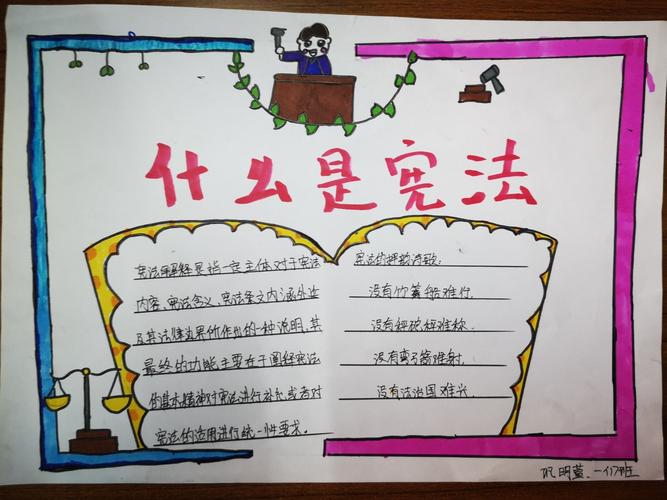 什么是宪法
宪法解释是指一定主体对于宪法
内容、宪法含义、宪法条文内涵外延
及其法律效果所作出的一种说明,其
最终的功能主要在于阐释宪法
的基本精神对宪法进行补充或者对
宪法的适用进行统一性要求。
宪法的
没有竹篙船难行,
没有秤砣秤难称
没有弯弓箭难射,
没有法治国难兴
明萱
班